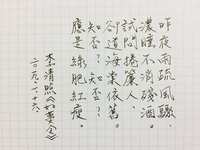 昨夜雨疏風驟。
濃睡不消殘酒。
試問捲簾人。
卻道海棠依舊。
知否？知否？
應是綠肥紅瘦。
李清照《如夢令》